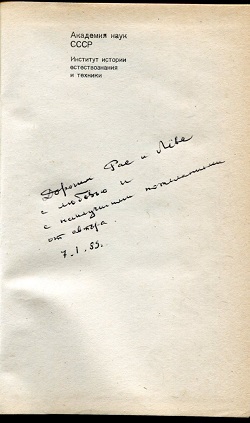 Академия наук
СССР
Институт истории
естествознания
и техники
Дорогим Рае и Лёве
с любовью и
с наилучшими пожеланиями
от автора.
7.I.89.